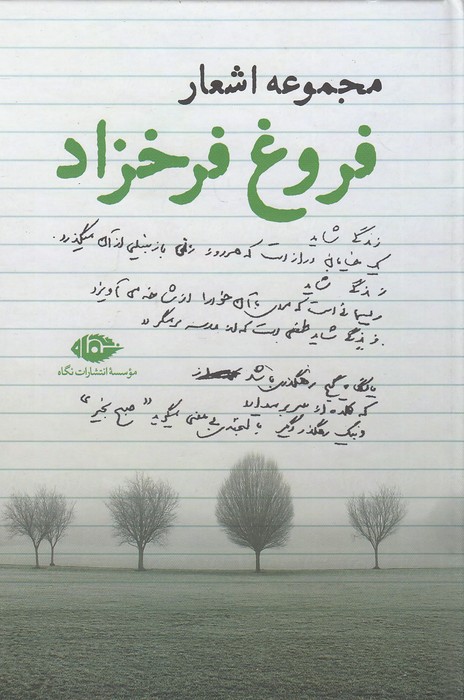 مجموعه اشعار
فروغ فرخزاد
زندگی شاید
یک خیابان درازست که هر روز زنی با زنبیلی از آن میگذرد.
زندگی شاید
ریسمانی است که مردی با آن خود را از شاخه می آویزد
زندگی شاید طفلی است که از مدرسه بر میگردد
یا نگاه گیج رهگذری باشد
که کلاه از سر بر میدارد
و بیک رهگذر دیگر با لبخندی بی معنی میگوید "صبح بخیر"
مؤسسهٔ انتشارات نگاه